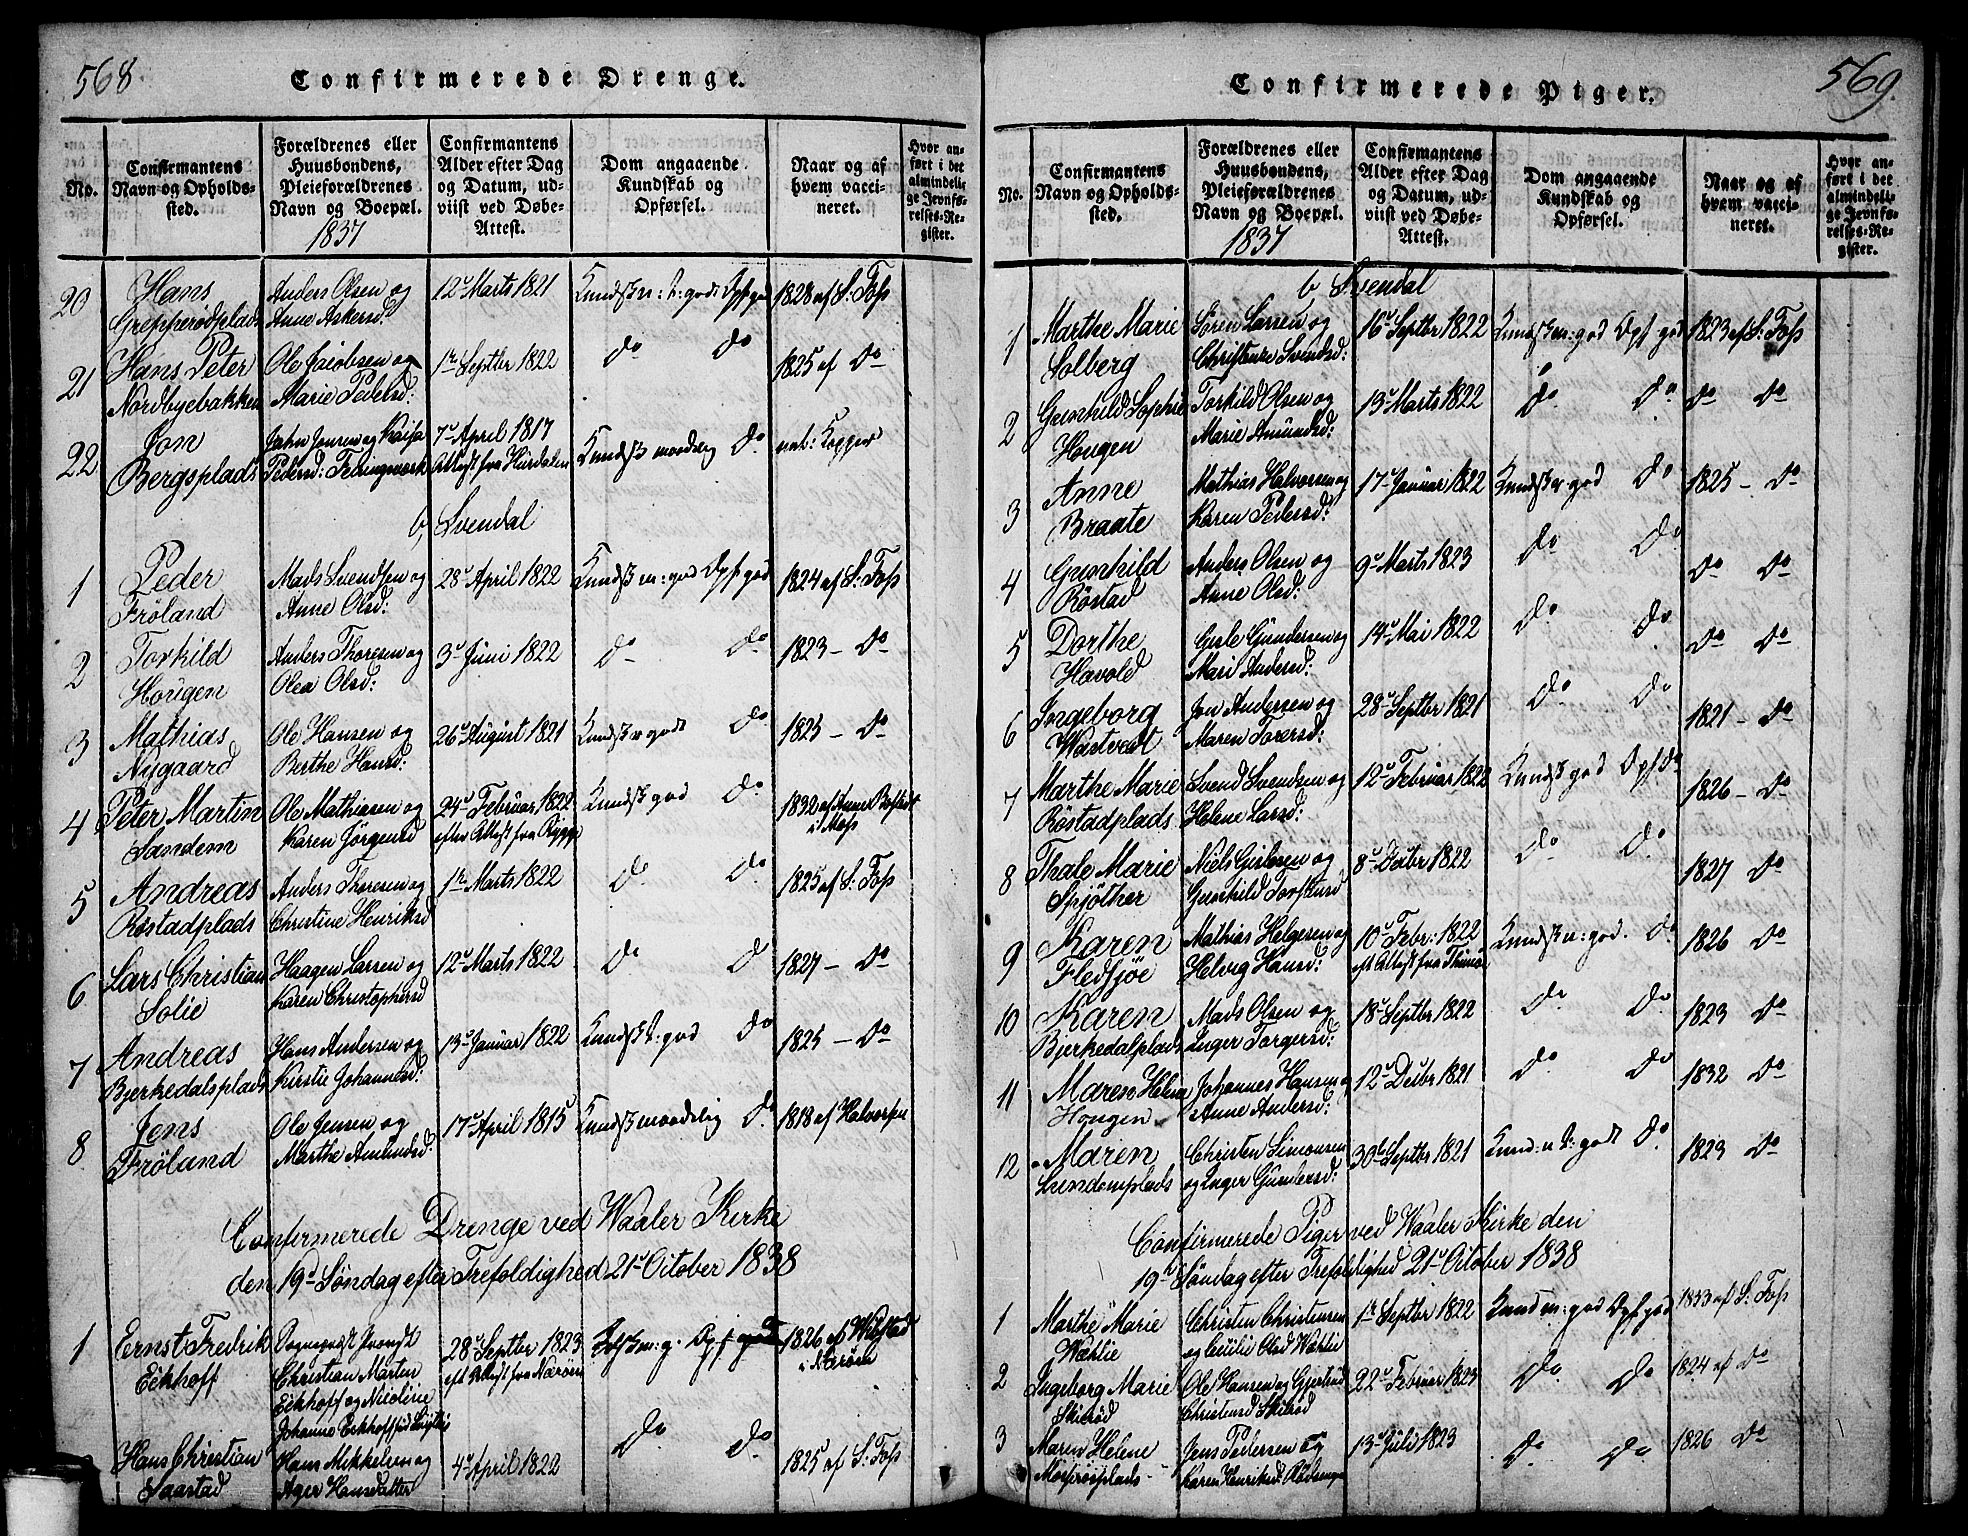 568.
Confirmerede Drenge.
No.
Confirmantens Navn og Opholdssted.
Forældrenes eller Huusbondens, Pleieforældrenes Navn og Boepæl.
1837
Confirmantens Alder efter Dag og Datum, udviist ved Døbe-Attest.
Dom angaaende Kundskab og Opførsel.
Naar og af hvem vaccineret.
Hvor anført i det almindelige Jevnførelses-Register.
20 Hans Anders Olsen og 12te Marts 1821 Kundsk n: t: godt Opf god 1828 af S: Foss
Grepperødplads Anne Askersd:
21 Hans Peter Ole Jacobsen og 1ste Septbr 1822 do do 1825 af do
Nordbyebakken Marie Pedersd:
22 Jon John Jonsen og Kaisa 7de April 1817 Kundsk maadelig do nat: Kopper
Bergsplads Pedersd: Attest fra Hurdalen
b, Svendal
1 Peder Mads Svendsen og 28de April 1822 Kundsk m: god Opf god 1824 af S: Foss
Frøland Anne Olsd:
2 Torkild Anders Thoresen og 3die Juni 1822 do do 1823 – do
Hougen Olea Olsd:
3 Mathias Ole Hansen og 26de August 1821 Kundsk godt do 1825 – do
Nygaard Berthe Hansd:
4 Peter Martin Ole Mathiesen og 24de Februar 1822 Kundsk god do 1832 af
Sandem Karen Jørgensd efter Attest fra Rygge i Moss
5 Andreas Anders Thoresen og 1ste Marts 1822 do do 1825 af S: Foss
Røstadplads Christine Henriksd
6 Lars Christian Haagen Larsen og 12te Marts 1822 do do 1827 – do
Solie Karen Christophersd
7 Andreas Hans Andersen og 13de Januar 1822 Kundsk t: god do 1825 – do
Bjerkedalsplads Kirstie Johannesd:
8 Jens Ole Jensen og 17de April 1815 Kundsk maadelig do 1818 af Halvorsen
Frøland Marthe Amundsd:
Confirmerede Drenge ved Waaler Kirke
den 19de Søndag efter Trefoldighed 21de October 1838
1 Ernst Fredrik 28de Septbr 1823 1826 af
Eckhoff Christian Martin eft Attest fra Nærøen
Eckhoff og Nicoline
Johanne Eckhoff
Hans Christian Hans Mikkelsen og 4de April 1822 do do 1825 af S: Foss
Saastad Hansdatter
569.
Confirmerede Piger.
No.
Confirmantens Navn og Opholdssted.
Forældrenes eller Huusbondens, Pleieforældrenes Navn og Boepæl.
1837
Confirmantens Alder efter Dag og Datum, udviist ved Døbe-Attest.
Dom angaaende Kundskab og Opførsel.
Naar og af hvem vaccineret.
Hvor anført i det almindelige Jevnførelses-Register.
b Svendal
1 Marthe Marie Søren Larsen og 16de Septbr 1822 Kundsk m: god Opf god 1823 af S: Foss
Solberg Christense Svendsd:
2 Gunhild Sophie Torkild Olsen og 13de Marts 1822 do do do do
Hougen Marie Amundsd:
3 Anne Mathias Halvorsen og 17de Januar 1822 Kundsk god do 1825 – do
Braate Karen Pedersd:
4 Gunhild Anders Olsen og 9de Marts 1823 do do do do
Røstad Anne Olsd:
5 Dorthe Gisle Gundersen og 14de Mai 1822 do do do do
Havold Mari Andersd:
6 Ingeborg Jon Andersen og 28de Septbr 1821 do do 1821 – do
Wastvedt Maren Toresd:
7 Marthe Marie Svend Svendsen og 12te Februar 1822 Kundsk god Opf do 1826 – do
Røstadplads Helene Larsd:
8 Thale Marie Niels Gislesen og 8de Decbr 1822 do do 1827 do
Spjøther Gunhild
9 Karen Mathias Helgesen og 10de Febr: 1822 Kundsk n: god. do 1826 do
Fledsjøe Helvig Hansd: eft Attest fra
10 Karen Mads Olsen og 18de Septbr 1822 do do 1823 do
Bjerkedalplads Inger Torgersd:
11 Maren Helene Johannes Hansen og 12te Decbr 1821 do do 1832 do
Hougen Anne Andersd:
12 Maren Christen Simonsen 30te Septbr 1821 Kund: n t: godt do 1823 do
Sundemplads og Inger Gundersd:
Confirmerede Piger ved Waaler Kirke den
19de Søndag efter Trefoldighed 21de October 1838
1 Marthe Marie Christen Christensen 1ste Septbr 1822 Kund m: god Opf god 1833 af S: Foss
Wæhlie og Cecilie Olsd Wæhlie
2 Ingeborg Marie Ole Hansen og 22de Februar 1823 do do 1824 af do
Skibrød Christensd Skibrød
3 Maren Helene Jens Pedersen og 13de Juli 1823 do do 1826 do
Karen Henriksd